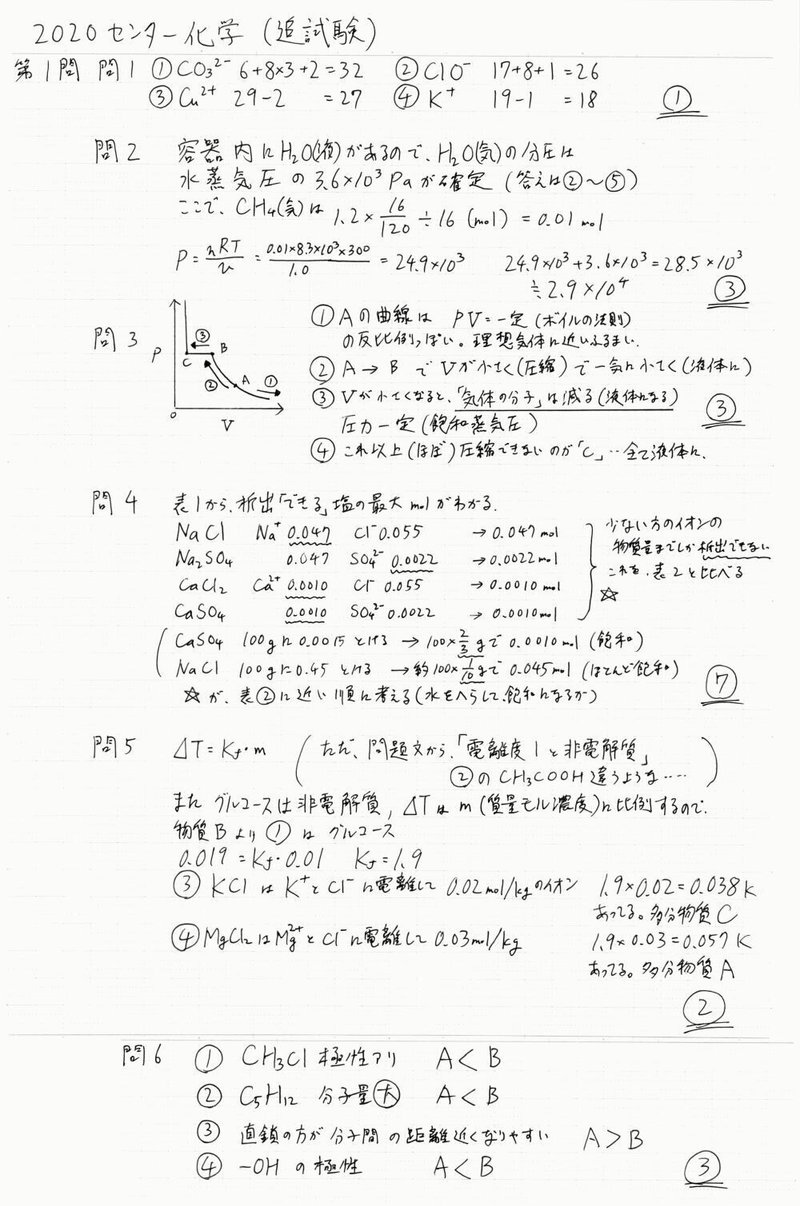 2020センター化学(追試験)
第1問 問1 ①CO₃²⁻ 6+8×3+2=32 ②ClO⁻ 17+8+1=26
③Cu²⁺ 29-2 =27 ④K⁺ 19-1 =18 ①
問2 容器内にH₂O(液)があるので、H₂O(気)の分圧は
水蒸気圧の3.6×10³Paが確定(答えは②〜⑤)
ここで、CH₄(気)は 1.2×16/120÷16(mol)=0.01mol
P=nRT/V=0.01×8.3×10³×300/1.0=24.9×10³ 24.9×10³+3.6×10³=28.5×10³
≒2.9×10⁴ ③
問3 P V 0 A B C ① ② ③
①Aの曲線は PV=一定(ボイルの法則)
の反比例っぽい。理想気体に近いふるまい。
②A→BでVが小さく(圧縮)で一気に小さく(液体に)
③Vが小さくなると、「気体の分子」は減る(液体になる)
圧力一定(飽和蒸気圧) ③
④これ以上(ほぼ)圧縮できないのが「C」‥全て液体に、
問4 表1から、析出「できる」塩の最大molがわかる。
NaCl Na⁺0.047 Cl⁻0.055 →0.047mol
Na₂SO₄ 0.047 SO₄²⁻0.0022 →0.0022mol
CaCl₂ Ca²⁺0.0010 Cl⁻0.055 →0.0010mol
CaSO₄ 0.0010 SO₄²⁻0.0022 →0.0010mol
少ない方のイオンの
物質量までしか析出できない
これを、表2と比べる
☆
CaSO₄ 100gに0.0015とける →100×2/3gで0.0010mol(飽和)
NaCl 100gに0.45とける →約100×1/10gで0.045mol(ほとんど飽和)
☆が、表②に近い順に考える(水をへらして、飽和になるか) ⑦
問5 ΔT=Kf・m (ただ、問題文から、「電離度1と非電解質」
②のCH₃COOH違うような‥‥)
またグルコースは非電解質,ΔTはm(質量モル濃度)に比例するので、
物質Bより①はグルコース
0.019=Kf・0.01 Kf=1.9
③KClはK⁺とCl⁻に電離して0.02mol/kgのイオン 1.9×0.02=0.038K
あってる。多分物質C
④MgCl₂はMg²⁺とCl⁻に電離して0.03mol/kg 1.9×0.03=0.057K
あってる。多分物質A
②
問6 ①CH₃Cl極性アリ A<B
②C₅H₁₂ 分子量大 A<B
③直鎖の方が分子間の距離近くなりやすい A>B
④-OHの極性 A<B ③